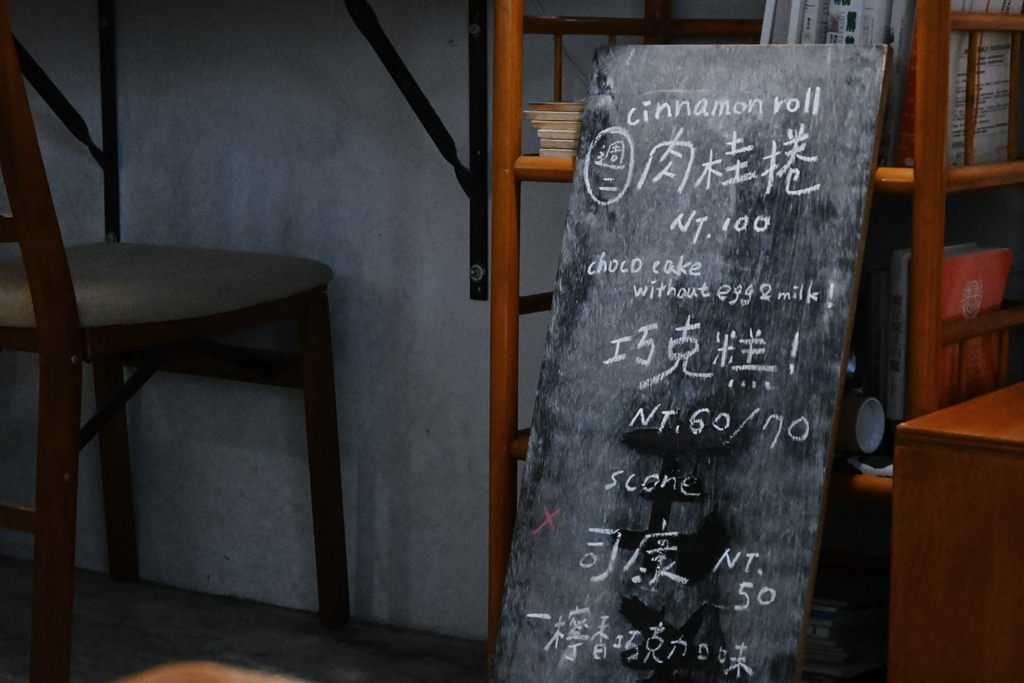 cinnamon roll
週二
肉桂捲
NT.100
choco cake
without egg & milk!
巧克糕!
NT.60/70
scone
司康 NT.
50
一檸香巧克力口味